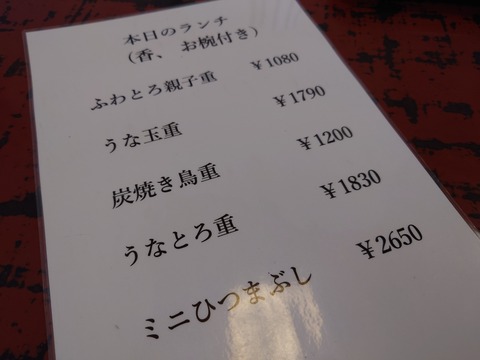 本日のランチ
(香、お椀付き)
ふわとろ親子重 ¥1080
うな玉重 ¥1790
炭焼き鳥重 ¥1200
うなとろ重 ¥1830
ミニひつまぶし ¥2650